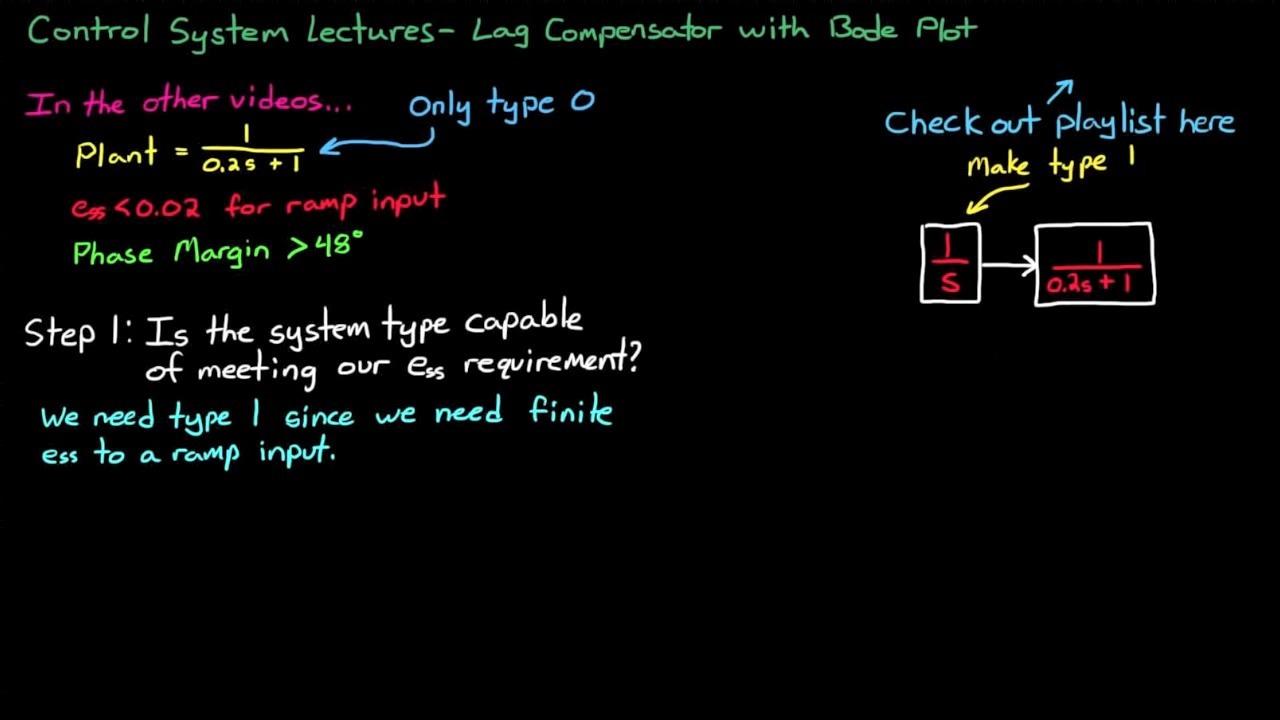 Control System Lectures- Lag Compensator with Bode Plot
In the other videos...
Only type 0
Plant = 1/(0.2s + 1)
ess <0.02 for ramp input
Phase Margin > 48°
Step 1: Is the system type capable
of meeting our ess requirement?
We need type 1 since we need finite
ess to a ramp input.
Check out playlist here
Make type 1
1/s
1/(0.2s + 1)